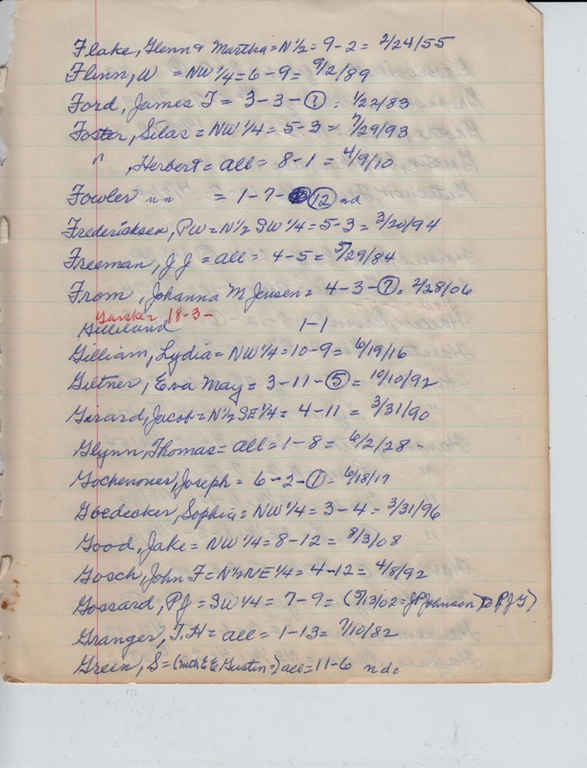 Flake, Glenn & Martha = N 1/2 = 9-2 = 2/24/55
Flinn, W = NW 1/4 = 6-9 = 9/2/89
Ford, James T = 3-3-① = 1/22/83
Foster, Silas = NW 1/4 = 5-3 = 7/29/93
" , Herbert = all = 8-1 = 4/9/10
Fowler n n = 1-7-⑫ nd
Fredericksen, PW = N 1/2 SW 1/4 = 5-3 = 3/20/94
Freeman, J J = all = 4-5 = 5/29/84
From, Johanna M Jensen = 4-3-⑦ = 2/28/06
18-3-
Gilliland 1-1
Gilliam, Lydia = NW 1/4 = 10-9 = 6/19/16
Giltner, Eva May = 3-11-⑤ = 10/10/92
Girard, Jacob = N 1/2 SE 1/4 = 4-11 = 3/31/90
Glynn, Thomas = all = 1-8 = 6/2/28 -
Gochenouer, Joseph = 6-2-① = 6/18/17
Goedecker, Sophia = NW 1/4 = 3-4 = 3/31/96
Good, Jake = NW 1/4 = 8-12 = 8/3/08
Gosch, John F = N 1/2 NE 1/4 = 4-12 = 4/8/92
Gossard, PJ = SW 1/4 = 7-9 = (5/13/02 = JP Johnson to PJG)
Granger, T.H = all = 1-13 = 7/10/82
Green, S = (with E E Gustin =) all = 11-6 nd